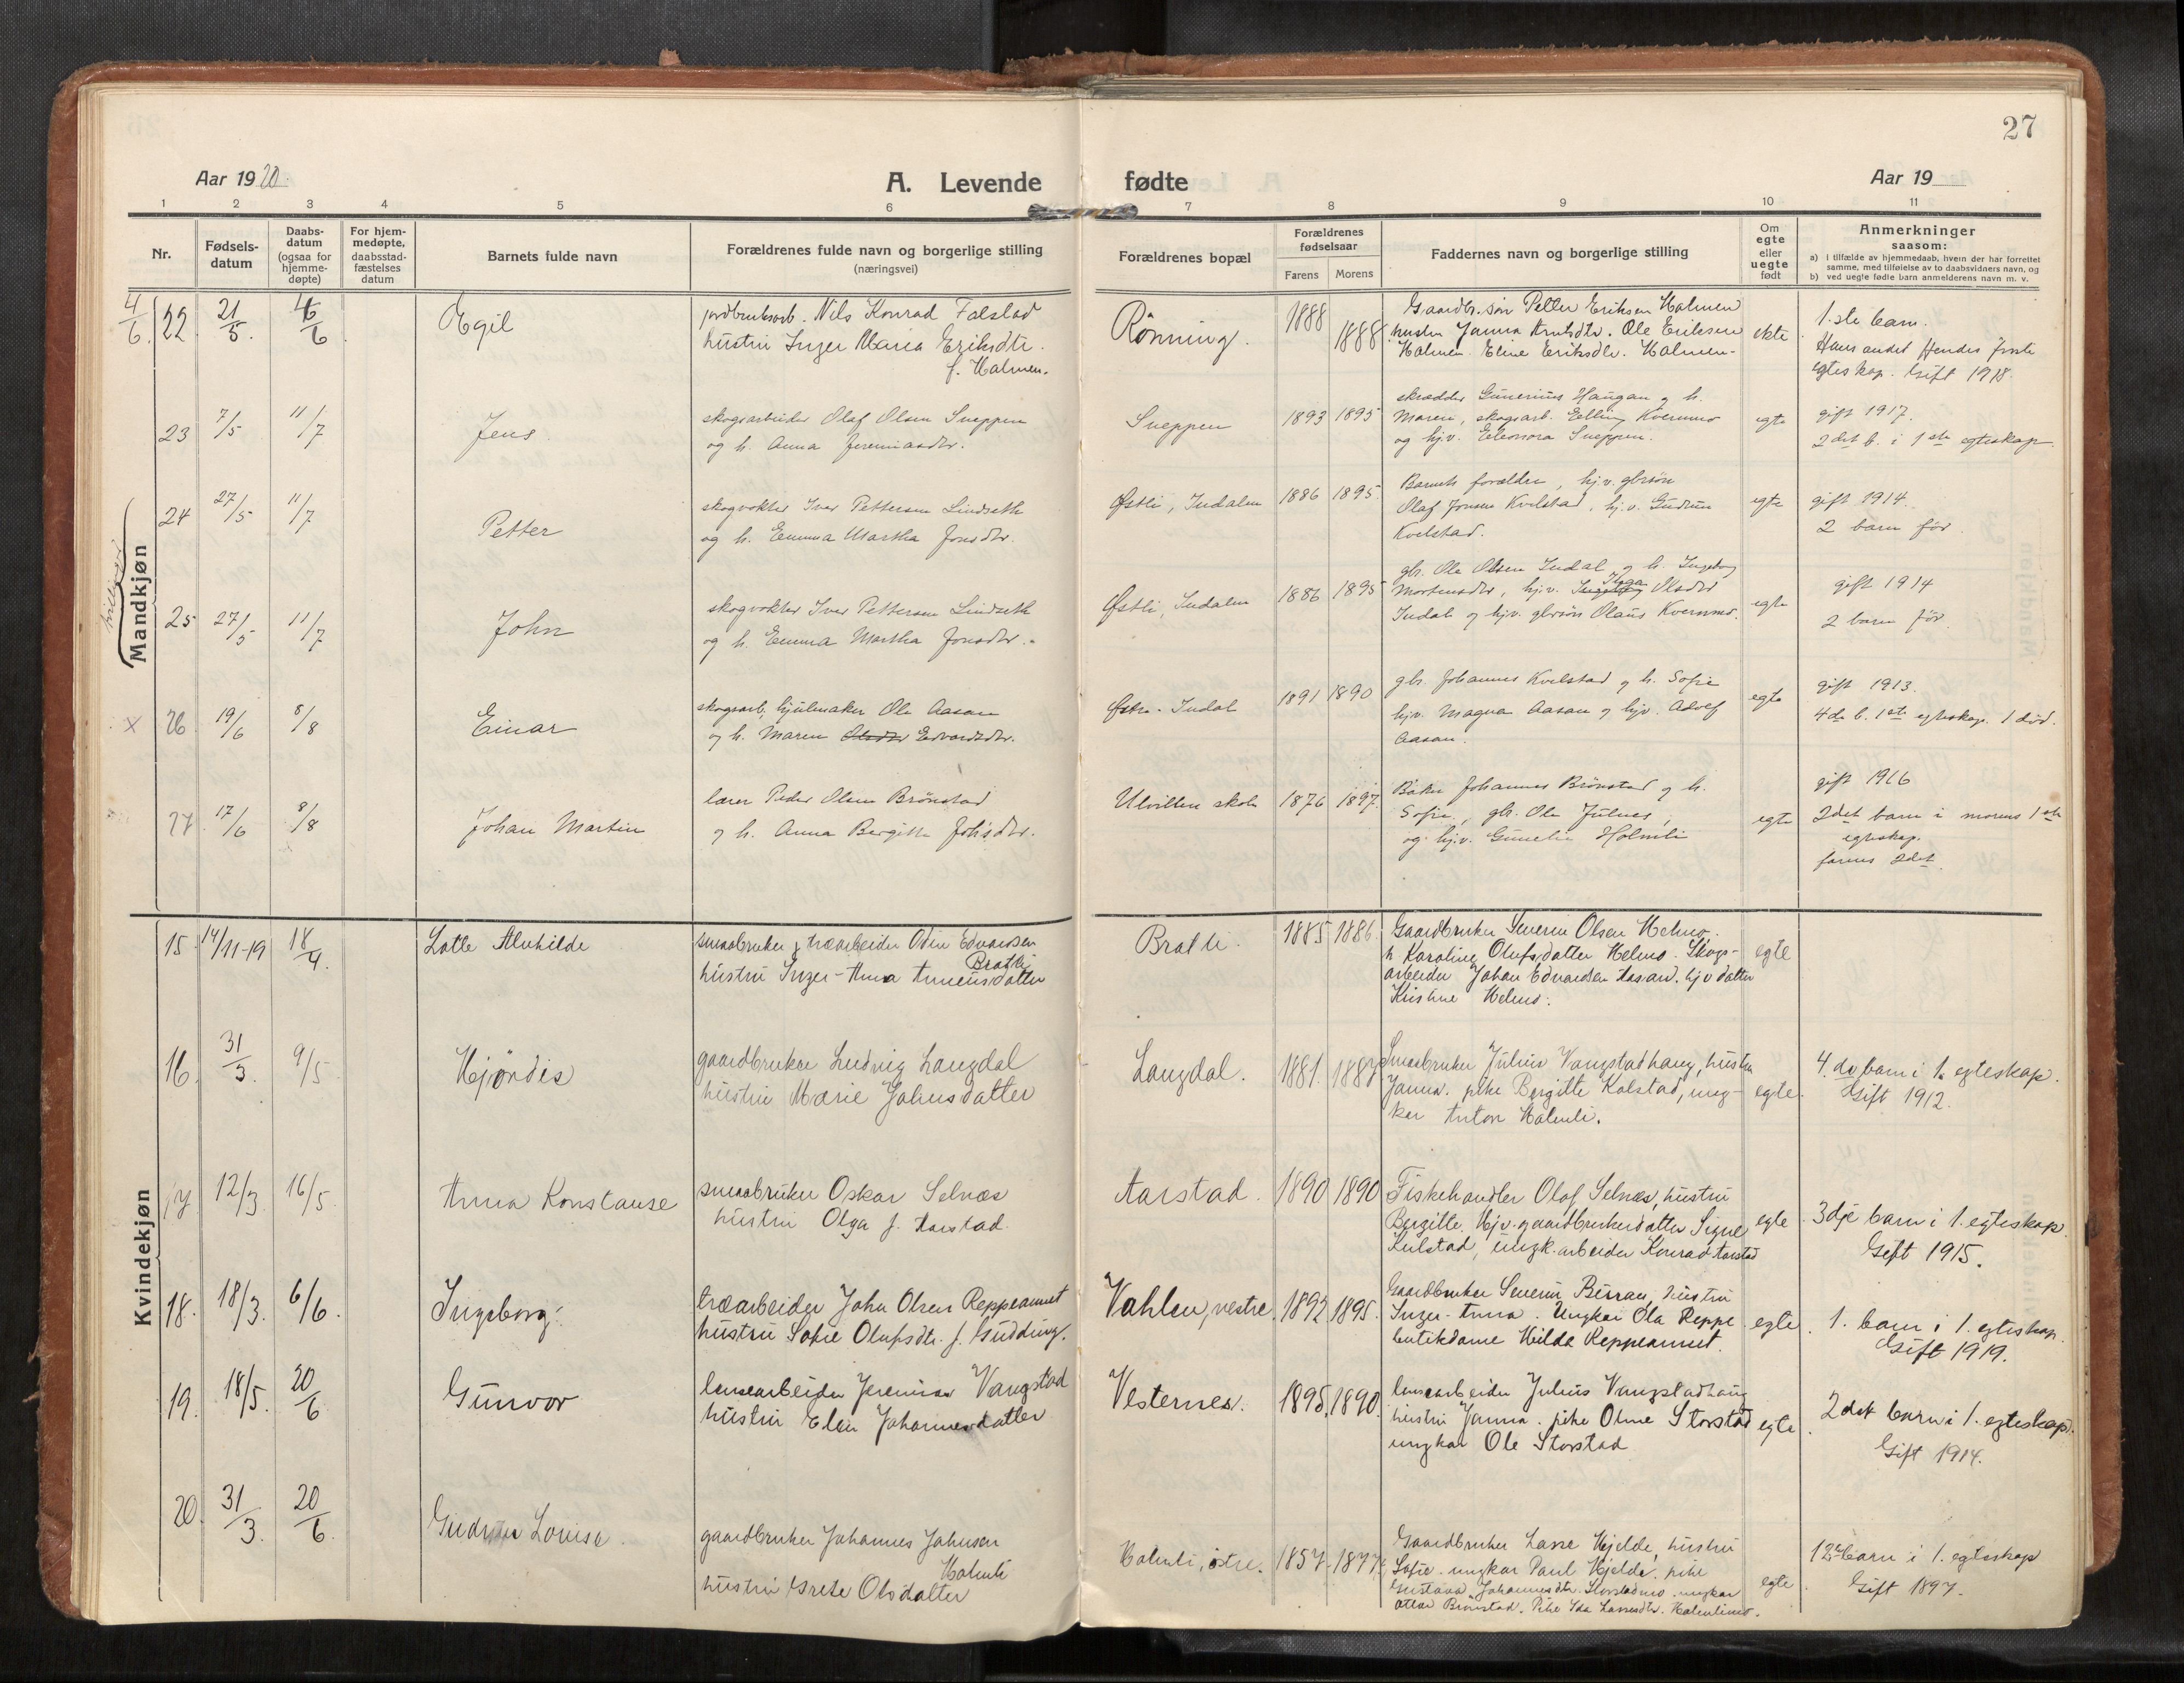 27
Aar 1920.
A. Levende fødte
Aar 19
1 2 3 4 5 6 7 8 9 10 11
Nr.
Fødsels-
datum
Daabs-
datum
(ogsaa for
hjemme-
døpte)
For hjem-
medøpte,
daabsstad-
fæstelses
datum
Barnets fulde navn
Forældrenes fulde navn og borgerlige stilling
(næringsvei)
Forældrenes bopæl
Forældrenes
fødselsaar
Farens Morens
Faddernes navn og borgerlige stilling
Om
egte
eller
uegte
født
Anmerkninger
saasom:
a) i tilfælde av hjemmedaab, hvem der har forrettet
samme, med tilføielse av to daabsvidners navn, og
b) ved uegte fødte barn anmelderens navn m. v.
Mandkjøn
4/6 22 21/5. 6/6 Egil
jordbruksarb. Nils Konrad Falstad
hustru Inger Maria Eriksdtr.
f. Halmen.
Rönning. 1888 1888
Gaardbr. sön Petter Eriksen Halmen
hustru Janna Arntsdtr. Ole Eriksen
Halmen. Eline Eriksdtr. Halmen.
ekte
1.ste barn.
Hans andet Hendes förste
egteskap. Gift 1918.
23 7/5 11/7 Jens
skogsarbeider Olaf Olsen Sneppen
og h. Anna Jeremiasdtr.
Sneppen 1893 1895
skrædder Gunerius Haugan og h.
Maren, skogsarb. Elling Kvernmo
og hjv. Eleonora Sneppen.
egte
gift 1917.
2det b. i 1ste egteskap
24 27/5 11/7 Petter
skogvokter Iver Pettersen Lindseth
og h. Emma Martha Jonsdtr.
Østli, Indalen 1886 1895
Barnets forældre, hj.v. gbrsön
Olaf Jonsen Kvelstad, hj.v. Gudrun
Kvelstad.
egte
gift 1914.
2 barn før.
25 27/5 11/7 John
skogvokter Iver Pettersen Lindseth
og h. Emma Martha Jonsdtr.
Østli, Indalen 1886 1895
gbr. Ole Olsen Indal og h. Ingeborg
Mortensdtr, hj.v. Inga Olsdtr
Indal og hjv. gbrsön Olaus Kvernmo.
egte
gift 1914
2 barn før.
x 26 19/6 8/8 Einar
skogsarb, hjulmaker Ole Aasan
og h. Maren Olsdtr Edvardsdtr.
Østre-Indal 1891 1890
gbr. Johannes Kvelstad og h. Sofie
hjv. Magna Aasan og hjv. Adolf
Aasan.
egte
gift 1913.
4de b. 1ste egteskap. 1 död.
27 17/6 8/8 Johan Martin
lærer Peder Olsen Brönstad
og h. Anna Bergitte Johsdtr.
Ulvillen skole 1876 1897.
Baker Johannes Brönstad og h.
Sofie, gbr. Ole Julnes,
og hj.v. Gunelie Holmli
egte
gift 1916
2det barn i morens 1ste
egteskap.
farens 2det
Kvindekjøn
15 14/11-19 18/4. Lotte Alvhilde
smaabruker & træarbeider Odin Edvardsen
Bratli
hustru Inger-Anna Arneusdatter
Bratli. 1885 1886
Gaardbruker Severin Olsen Helmo.
h Karoline Olufsdatter Helmo. Skogs-
arbeider Johan Edvardsen Aasan. hjv datter
Kristine Helmo.
egte
16. 31/3. 9/5 Hjördis
gaardbruker Ludvig Langdal
hustru Marie Johnsdatter
Langdal. 1881. 1887
Smaabruker Julius Vangstadhaug, hustru
Janna. pike Bergitte Kolstad, ung-
kar Anton Halmli.
egte.
4.de barn i 1. egteskap.
Gift 1912.
17 12/3. 16/5 Anna Konstanse
smaabruker Oskar Selnæs
hustru Olga f. Aarstad
Aarstad. 1890 1890
Fiskehandler Olaf Selnæs, hustru
Bergitte. Hjv. gaardbrukerdatter Signe
Kulstad, ungk. arbeider Konrad Aarstad
egte
3dje barn i 1. egteskap.
Gift 1915.
18. 18/3. 6/6. Ingeborg.
træarbeider John Olsen Reppeaunet
hustru Sofie Olufsdtr. f. Gudding.
Vahlen, vestre. 1892 1895.
Gaardbruker Severin Bisrau, hustru
Inger-Anna. Ungkar Ola Reppe
butikdame Hilda Reppeaunet.
egte.
1. barn i 1. egteskap.
Gift 1919.
19. 18/5. 20/6 Gunvor
lensearbeider Jeremias Vangstad
hustru Elen Johannesdatter
Vesternes. 1895, 1890.
lensearbeider Julius Vangstadhaug
hustru Janna. pike Oline Storstad
ungkar Ole Storstad
egte.
2det barn i 1. egteskap.
Gift 1914.
20. 31/3. 20/6. Gudrun Louise.
gaardbruker Johannes Johnsen
Halmli
hustru Grete Olsdatter
Halmli, östre. 1857 1877
Gaardbruker Lasse Hjelde, hustru
Sofie. ungkar Paul Hjelde, pike
Gustava Johannesdtr. Storstadmo. ungkar
Ottar Brönstad. Pike Ida Lassesdtr. Halmlimo.
egte
12te barn i 1. egteskap
Gift 1897.